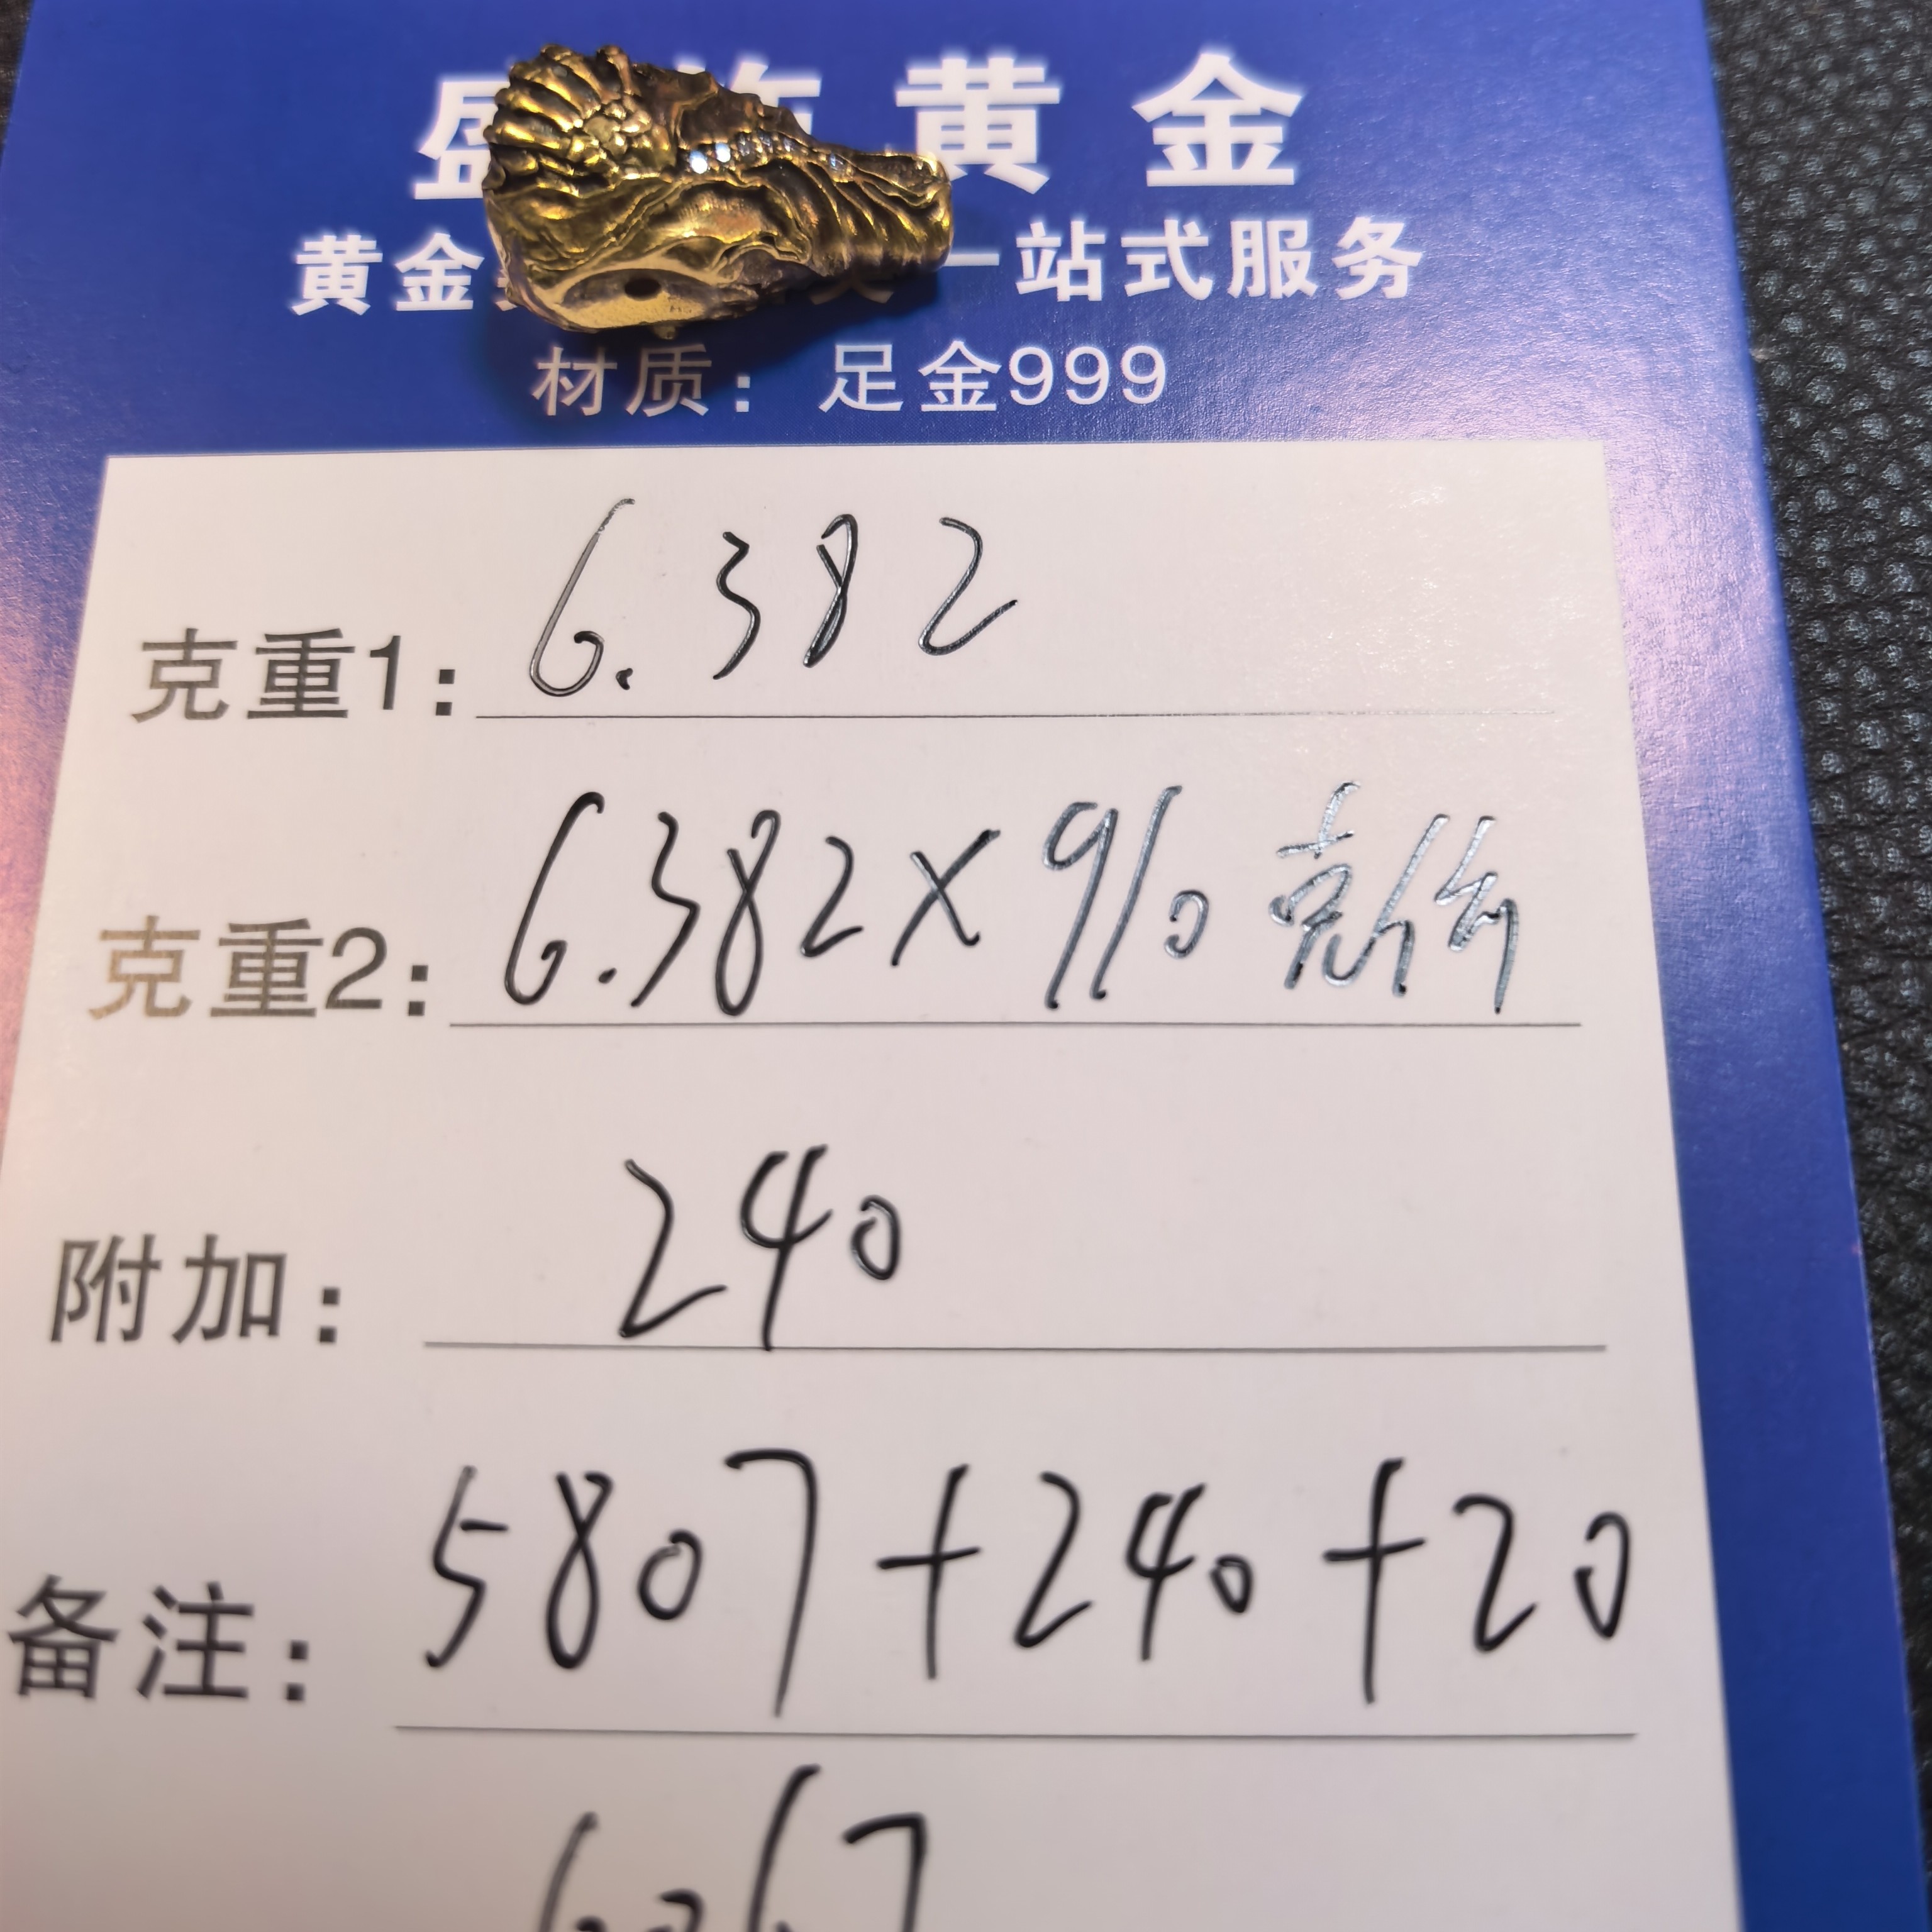 黄金
黄金 一站式服务
材质：足金999
克重1：6.382
克重2：6.382×910克价
附加：240
备注：5807+240+20
6067